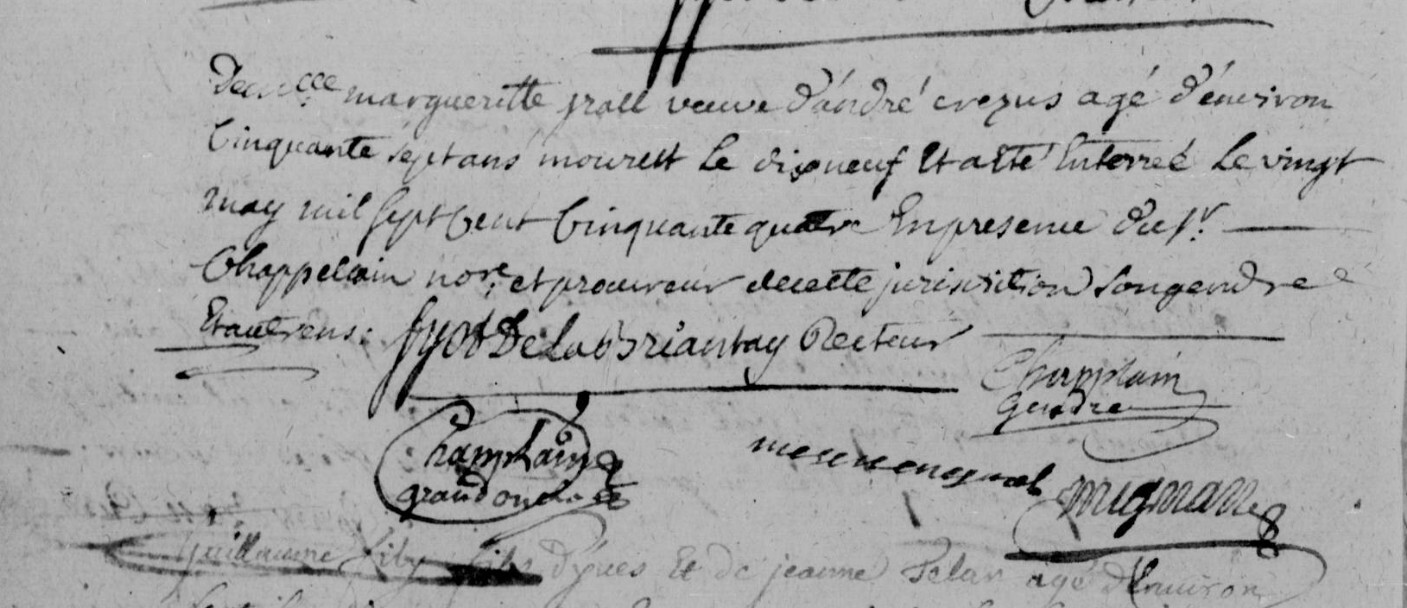 margueritte prall veuve d'andré crezus agé d'environ
Cinquante sept ans mourutt Le dixneuf Et a eté Enterreé Le vingt
may mil sept Cent Cinquante quatre En presence du sr.
Chappelain nore. et procureur de cette jurisdition Son gendre
Et autres:
De La Briantay Recteur
Chapplain
Gendre
Champlain
grand oncle
mignard
Guillaume fily fils d'yves Et de jeanne agé d'Environ